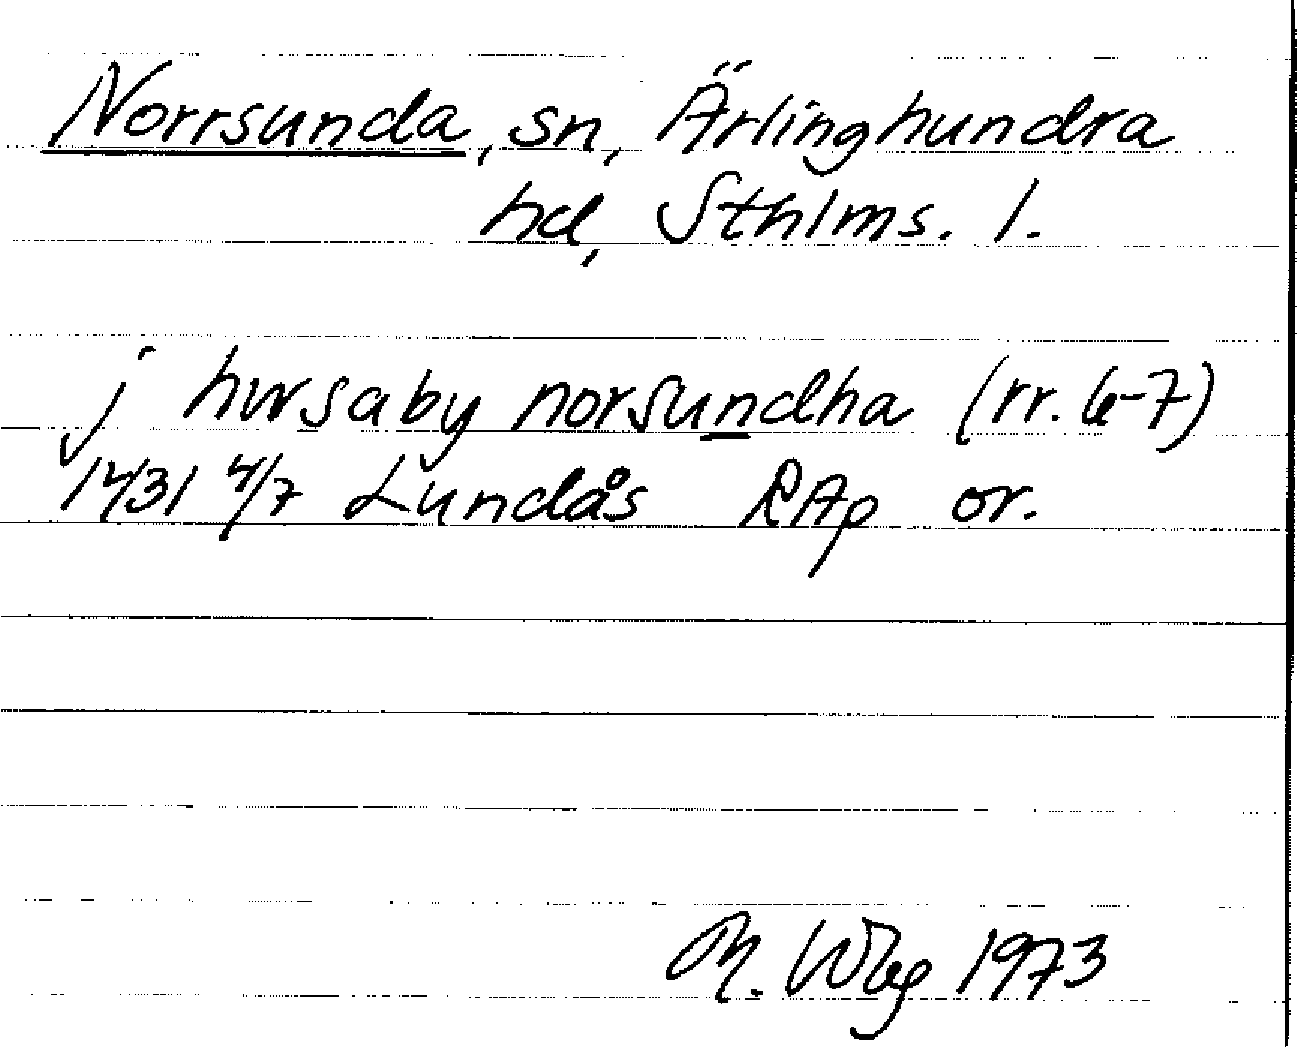 Norrsunda, sn, Ärlinghundra
hd, Sthlms. l.
j hwsaby norsundha (rr. 6-7)
1431 4/7 Lundås RAp or.
M. Wbg 1973